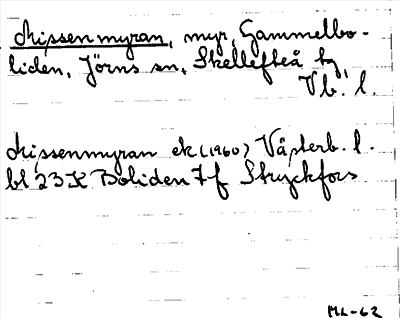 Missenmyran, myr, Gammelbo-
liden, Jörns sn, Skellefteå tg,
Vb. l.
Missenmyran ek (1960) Västerb. l.
bl 23K Boliden 7f Stryckfors
ML-62